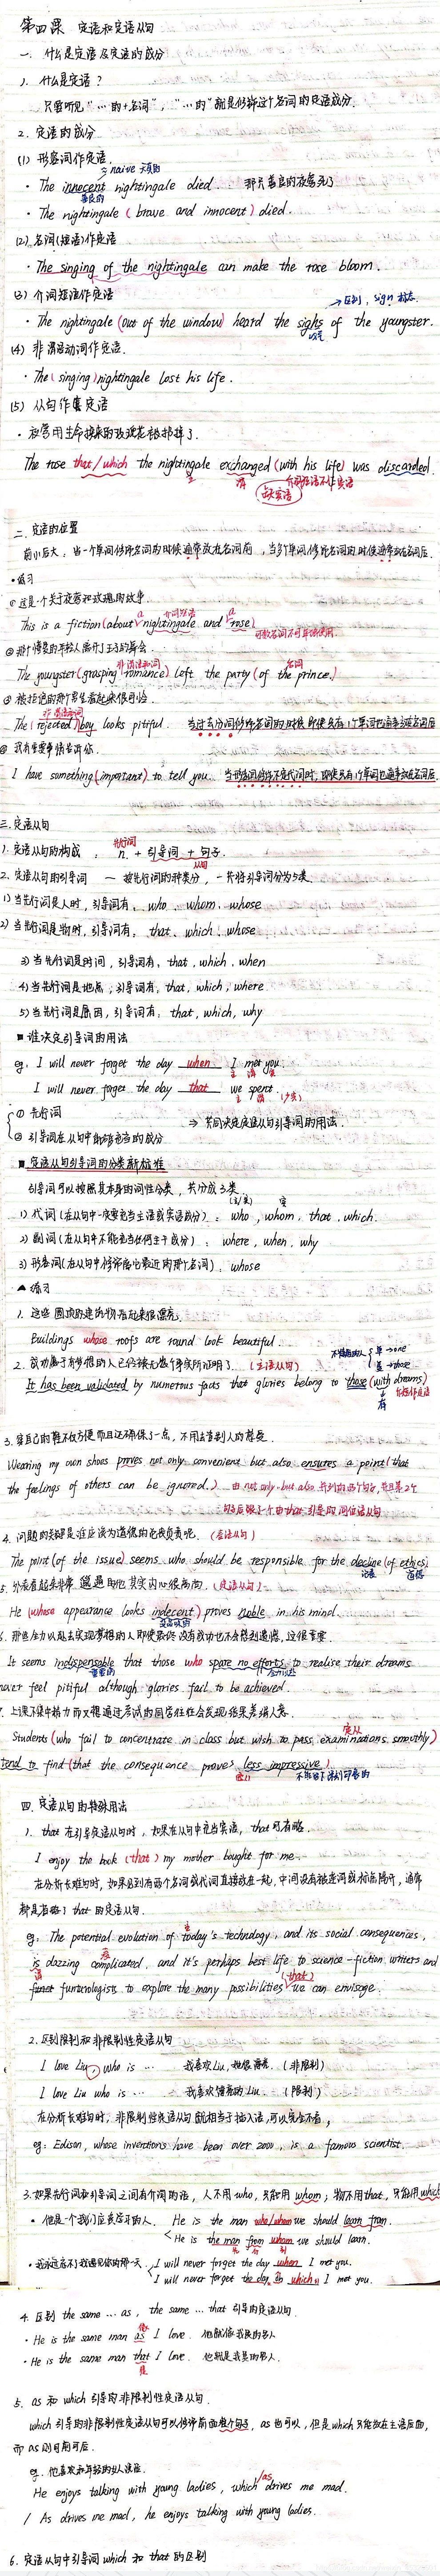 第四课 定语和定语从句
一、什么是定语及定语的成分
1. 什么是定语?
只要听见"…的+名词","…的"就是修饰这个名词的定语成分.
2. 定语的成分
(1) 形容词作定语
naive 天真的
· The innocent nightingale died. 那只善良的夜莺死了
善良的
· The nightingale (brave and innocent) died.
(2) 名词(短语)作定语
· The singing of the nightingale can make the rose bloom.
(3) 介词短语作定语
→区别, sign 标志
· The nightingale (out of the window) heard the sighs of the youngster.
叹气
(4) 非谓语动词作定语.
· The (singing) nightingale lost his life.
(5) 从句作定语
· 夜莺用生命换来的玫瑰花被扔掉了.
The rose that/which the nightingale exchanged (with his life) was discarded.
主 谓 介词短语不作宾语
缺宾语
二、定语的位置
前小后大: 当一个单词修饰名词的时候通常放在名词前, 当多个单词修饰名词的时候通常放在名词后.
·练习
① 这是一个关于夜莺和玫瑰的故事.
a 介词短语 a
This is a fiction (about nightingale and rose)
可数名词不可单独使用.
② 那个憧憬的年轻人离开了王子的舞会.
非谓语动词 名词
The youngster (grasping romance) left the party (of the prince.)
③ 被拒绝的那个男生看起来很可怜
非谓语动词
The (rejected) boy looks pitiful. 当过去分词修饰名词的时候, 即使只有1个单词也通常放在名词后
④ 我有重要事情告诉你.
I have something (important) to tell you. 当形容词修饰不定代词时, 即使只有1个单词也通常放在名词后.
三、定语从句
1. 定语从句的构成: n. + 引导词 + 句子.
先行词 从句
2. 定语从句的引导词 — 按先行词的种类分, 一共将引导词分为5类.
1) 当先行词是人时, 引导词有: who、whom、whose
2) 当先行词是物时, 引导词有: that、which、whose
3) 当先行词是时间, 引导词有: that, which, when
4) 当先行词是地点, 引导词有: that, which, where
5) 当先行词是原因, 引导词有: that, which, why
■ 谁决定引导词的用法
eg: I will never forget the day when I met you.
主 谓 宾
I will never forget the day that we spent.
主 谓 (少宾)
① 先行词
② 引导词在从句中所充当的成分
⇒ 共同决定定语从句引导词的用法.
■ 定语从句引导词的分类新标准
引导词可以按照其本身的词性分类, 共分成3类
(主/宾) 宾
1) 代词 (在从句中一定要充当主语或宾语成分): who, whom, that, which.
2) 副词 (在从句中不能充当任何主干成分): where, when, why
3) 形容词 (在从句中修饰离它最近的那个名词): whose
▲ 练习
1. 这些圆顶的建筑物看起来很漂亮.
Buildings whose roofs are round look beautiful.
2. 成功属于有梦想的人已经被无数个事实所证明了. (主语从句)
单→one
复→those
It has been validated by numerous facts that glories belong to those (with dreams)
有 介短作定语
3. 穿自己的鞋不仅方便而且还确保了一点, 不用去管别人的感受.
Wearing my own shoes proves not only convenient but also ensures a point (that
the feelings of others can be ignored.) 由 not only…but also 并列的两个句子, 并且第2个
句子后跟了个由that引导的同位语从句
4. 问题的关键是谁应该为道德的沦丧负责呢. (表语从句)
The point (of the issue) seems who should be responsible for the decline (of ethics)
沦丧 道德
5. 外表看起来非常邋遢的他其实内心很高尚. (定语从句)
He (whose appearance looks indecent) proves noble in his mind.
6. 那些全力以赴去实现梦想的人即使最终没有成功也不会感到遗憾, 这很重要.
It seems indispensable that those who spare no efforts to realise their dreams
重要的 全力以赴
never feel pitiful although glories fail to be achieved.
7. 上课不集中精力而又想通过考试的同学往往会发现结果差强人意.
定从
Students (who fail to concentrate in class but wish to pass examinations smoothly)
tend to find (that the consequence proves less impressive)
宾从
四、定语从句的特殊用法
1. that 在引导定语从句时, 如果在从句中充当宾语, that可省略.
I enjoy the book (that) my mother bought for me.
在分析长难句时, 如果见到有两个名词或代词直接放在一起, 中间没有被连词或标点隔开, 通常
都是省略了that的定语从句.
主
eg: The potential evolution of today's technology, and its social consequences,
表
is dazzing complicated, and it's perhaps best life to science-fiction writers and
谓 (that)
funturologists to explore the many possibilities we can envisage.
2. 区别限制和非限制性定语从句
I love Liu, who is … 我喜欢Liu, 她很漂亮. (非限制)
I love Liu who is … 我喜欢漂亮的Liu. (限制)
在分析长难句时, 非限制性定语从句就相当于插入语, 可以完全不看;
eg: Edison, whose inventions have been over 2000, is a famous scientist.
3. 如果先行词和引导词之间有介词的话, 人不用who, 只能用whom; 物不用that, 只能用which
· 他是一个我们应该学习的人. He is the man who/whom we should learn from.
He is the man from whom we should learn.
· 我永远忘不了我遇见你的那一天 I will never forget the day when I met you.
I will never forget the day in which I met you.
4. 区别 the same … as, the same … that 引导的定语从句.
像
· He is the same man as I love. 他就像我爱的男人
· He is the same man that I love. 他就是我爱的男人.
是
5. as 和 which 引导的非限制性定语从句.
which 引导的非限制性定语从句可以修饰前面整个句子, as也可以, 但是which只能放在主语后面,
而as则可前可后.
eg. 他喜欢和年轻的女人谈话.
/as
He enjoys talking with young ladies, which drives me mad.
/ As drives me mad, he enjoys talking with young ladies.
6. 定语从句中引导词 which 和 that 的区别